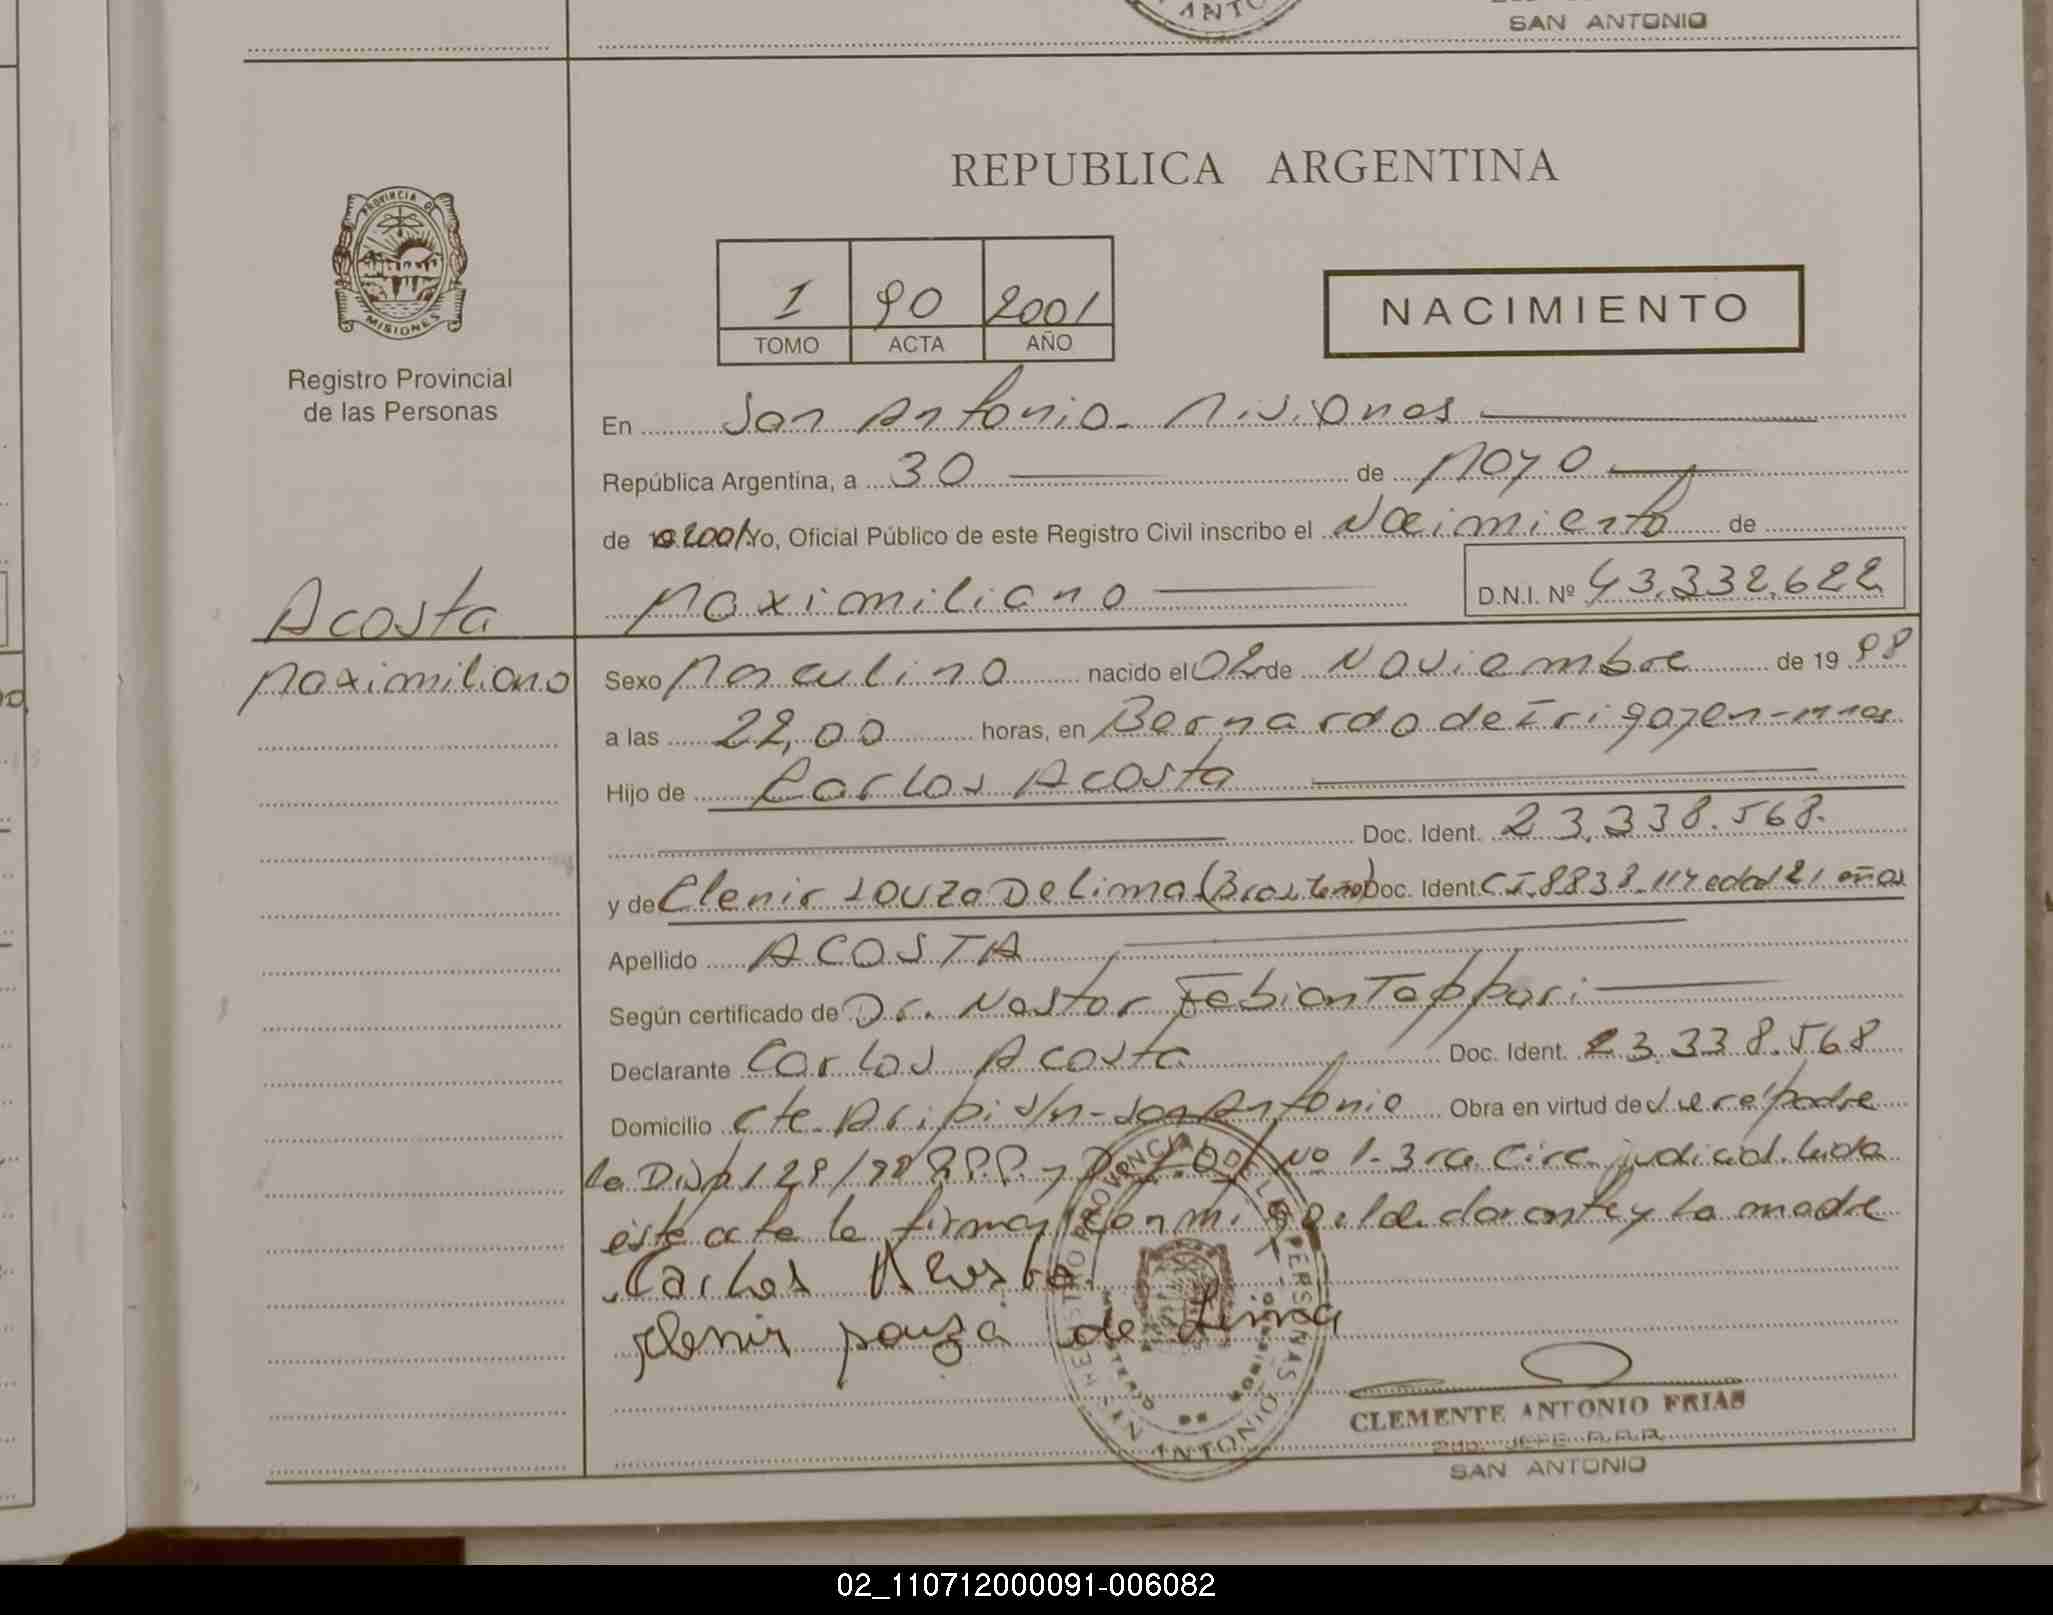 SAN ANTONIO
PROVINCIA DE
MISIONES
Registro Provincial
de las Personas
REPUBLICA ARGENTINA
1 90 2001
TOMO ACTA AÑO
NACIMIENTO
En San Antonio - Misiones
República Argentina, a 30 de Mayo
de 2001 Yo, Oficial Público de este Registro Civil inscribo el Nacimiento de
Maximiliano D.N.I. Nº 43.332.622
Acosta
Maximiliano
Sexo Masculino nacido el 02 de Noviembre de 19 98
a las 22,00 horas, en Bernardo de Irigoyen - Mnes
Hijo de Carlos Acosta
Doc. Ident. 23.338.568.
y de Elenir Souza De Lima (Brasileña) Doc. Ident. C.I. 8838.114 edad 21 años
Apellido ACOSTA
Según certificado de Dr. Nestor Fabian Tappari
Declarante Carlos Acosta Doc. Ident. 23.338.568
Domicilio Cte. Aripi s/n - San Antonio Obra en virtud de ser el padre
la Disp 129/98 R.P.P. y Nº 1 - 3ra Circ. judicial. Leida
este acta la firman con mi go el declarante y la madre
Carlos Acosta
elenir souza de Lima
REGISTRO PROVINCIAL DE LAS PERSONAS
SAN ANTONIO
CLEMENTE ANTONIO FRIAS
Sub. JEFE R.P.P.
SAN ANTONIO
02_110712000091-006082